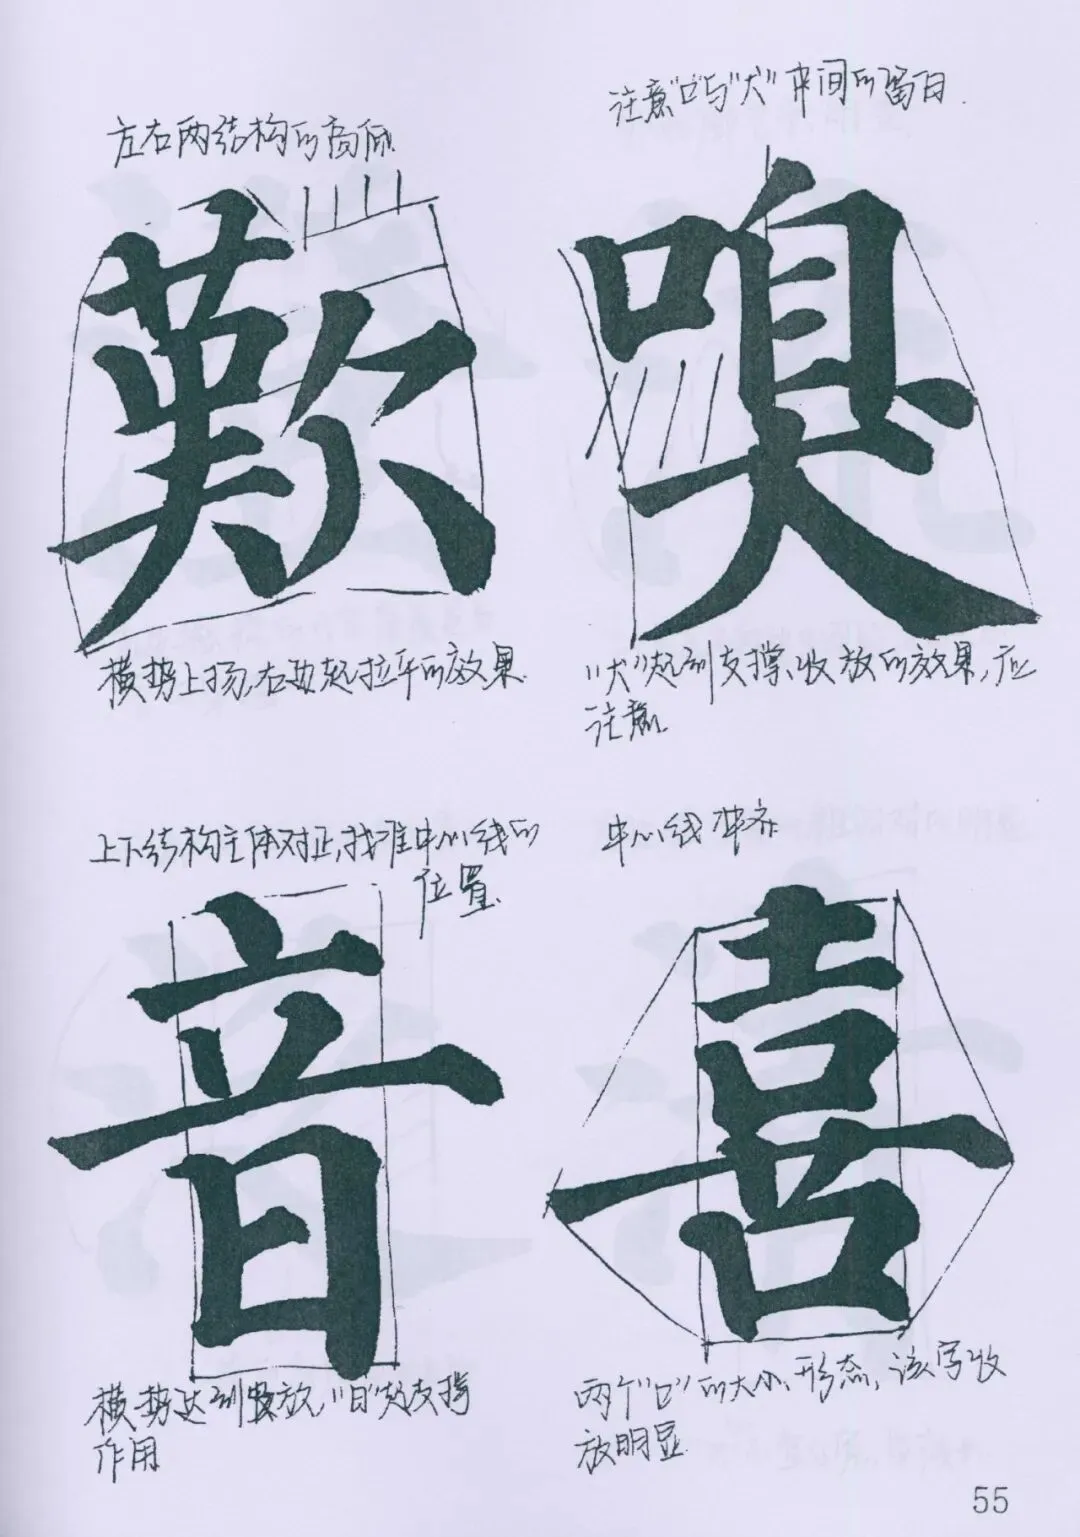 左右两结构的高低
歎
横势上扬,右边起拉平的效果.
注意“口”与“犬”中间的留白.
嗅
“犬”起到支撑、收放的效果,应
注意.
上下结构主体对正,找准中心线的
位置.
音
横势达到收放,“日”起支撑
作用
中心线冲齐
喜
两个“口”的大小、形态,该字收
放明显.
55